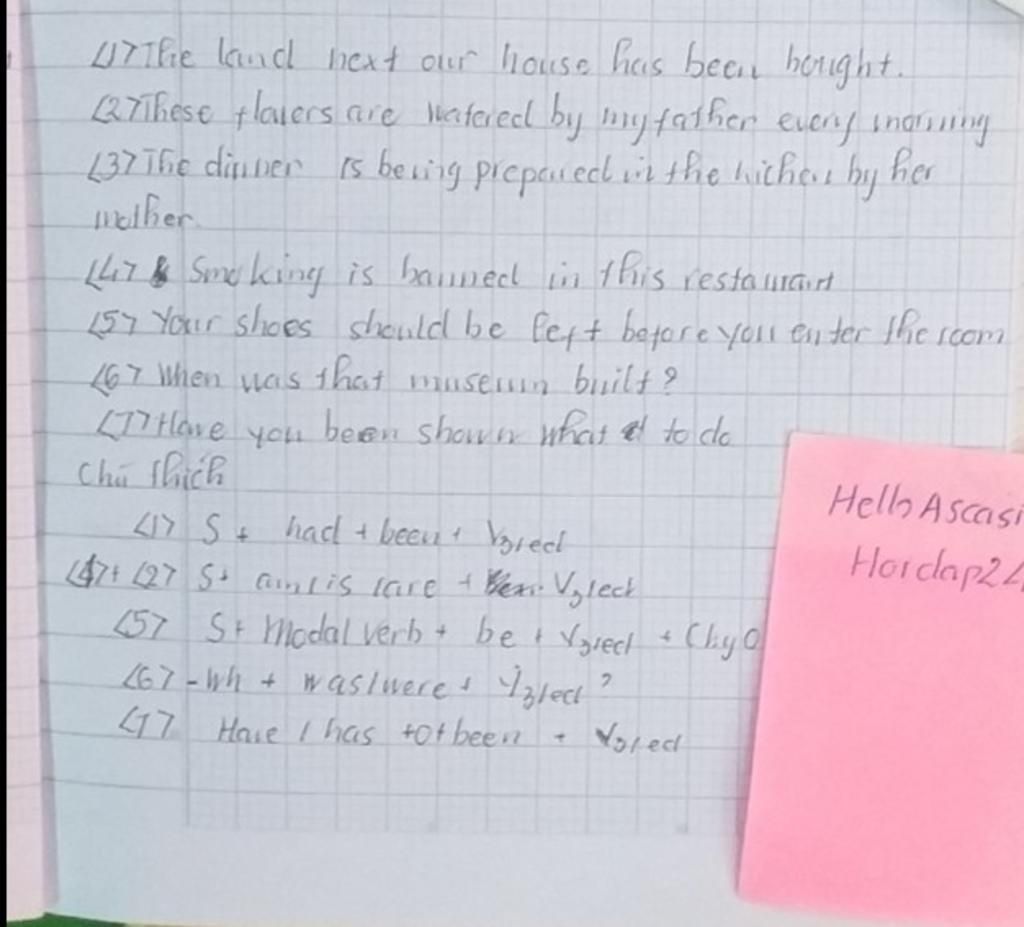 <1> The land next our house has been bought.
<2> These flowers are watered by my father every morning
<3> The dinner is being prepared in the kichen by her
mother.
<4> Smoking is banned in this restaurant
<5> Your shoes should be left before you enter the room
<6> When was that museum built?
<7> Have you been shown what to do
Chú thích
<1> S + had + been + V3/ed
<4> + <2> S + am/is/are + V3/ed
<5> S + Modal verb + be + V3/ed + (by O
<6> - Wh + was/were + V3/ed?
<7> Have / has + O + been + V3/ed
Hello Ascasi
Hoidap24